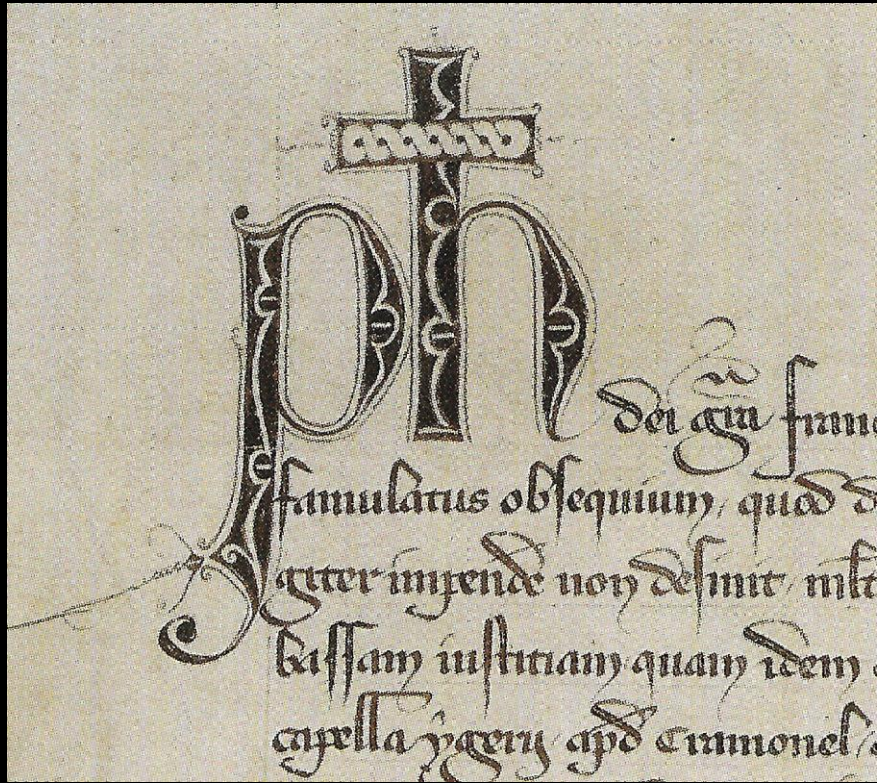 Ph
dei gra franc
famulatus obsequium quod d
giter impende non desinit mlt
bassam iustitiam quam idem
capella ygerii apd Cramonel